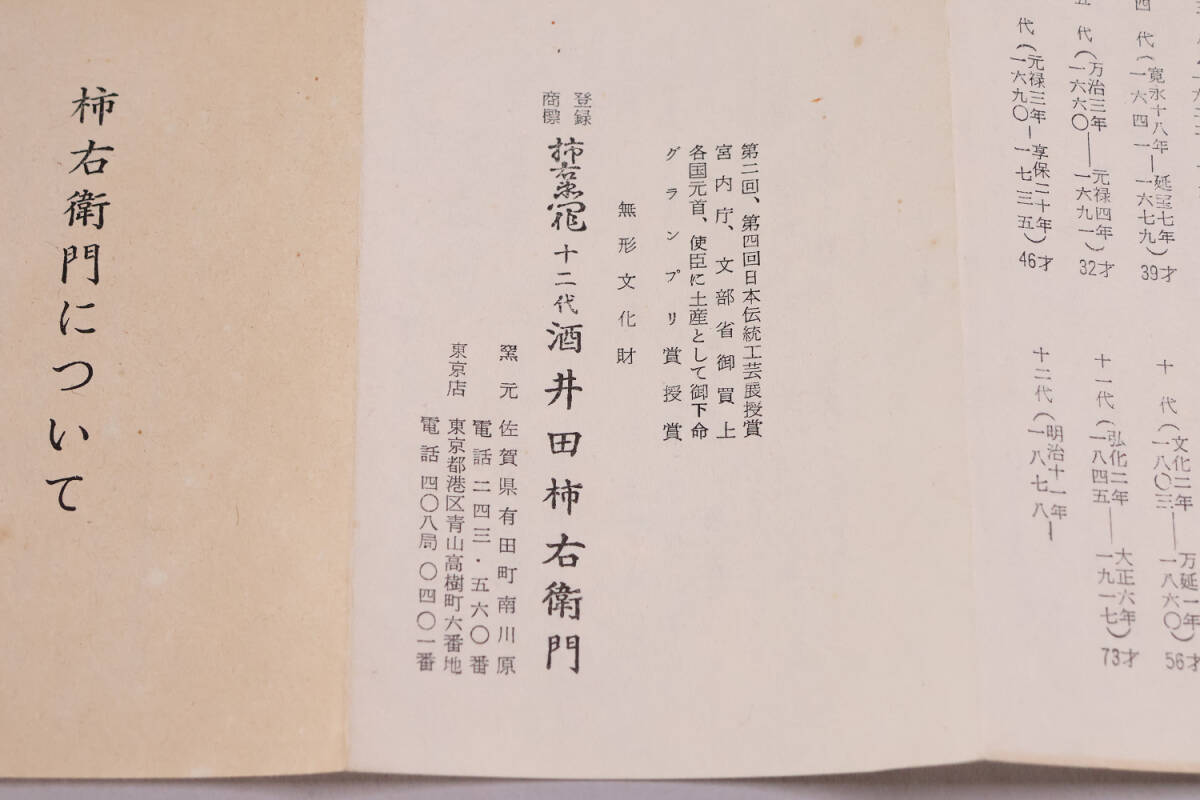 四代(寛永十八年―延宝七年)39才
(一六四一―一六七九)
五代(万治三年――元禄四年)32才
(一六六〇――一六九一)
代(元禄三年―享保二十年)46才
(一六九〇―一七三五)
十代(文化二年――万延一年)56才
(一八〇三――一八六〇)
十一代(弘化二年――大正六年)73才
(一八四五――一九一七)
十二代(明治十一年―
(一八七八―
第二回、第四回日本伝統工芸展授賞
宮内庁、文部省御買上
各国元首、使臣に土産として御下命
グランプリ賞授賞
無形文化財
登録
商標
柿右衛門作 十二代 酒井田柿右衛門
窯元 佐賀県有田町南川原
電話 二四三・五六〇番
東京店 東京都港区青山高樹町六番地
電話 四〇八局〇四〇一番
柿右衛門について